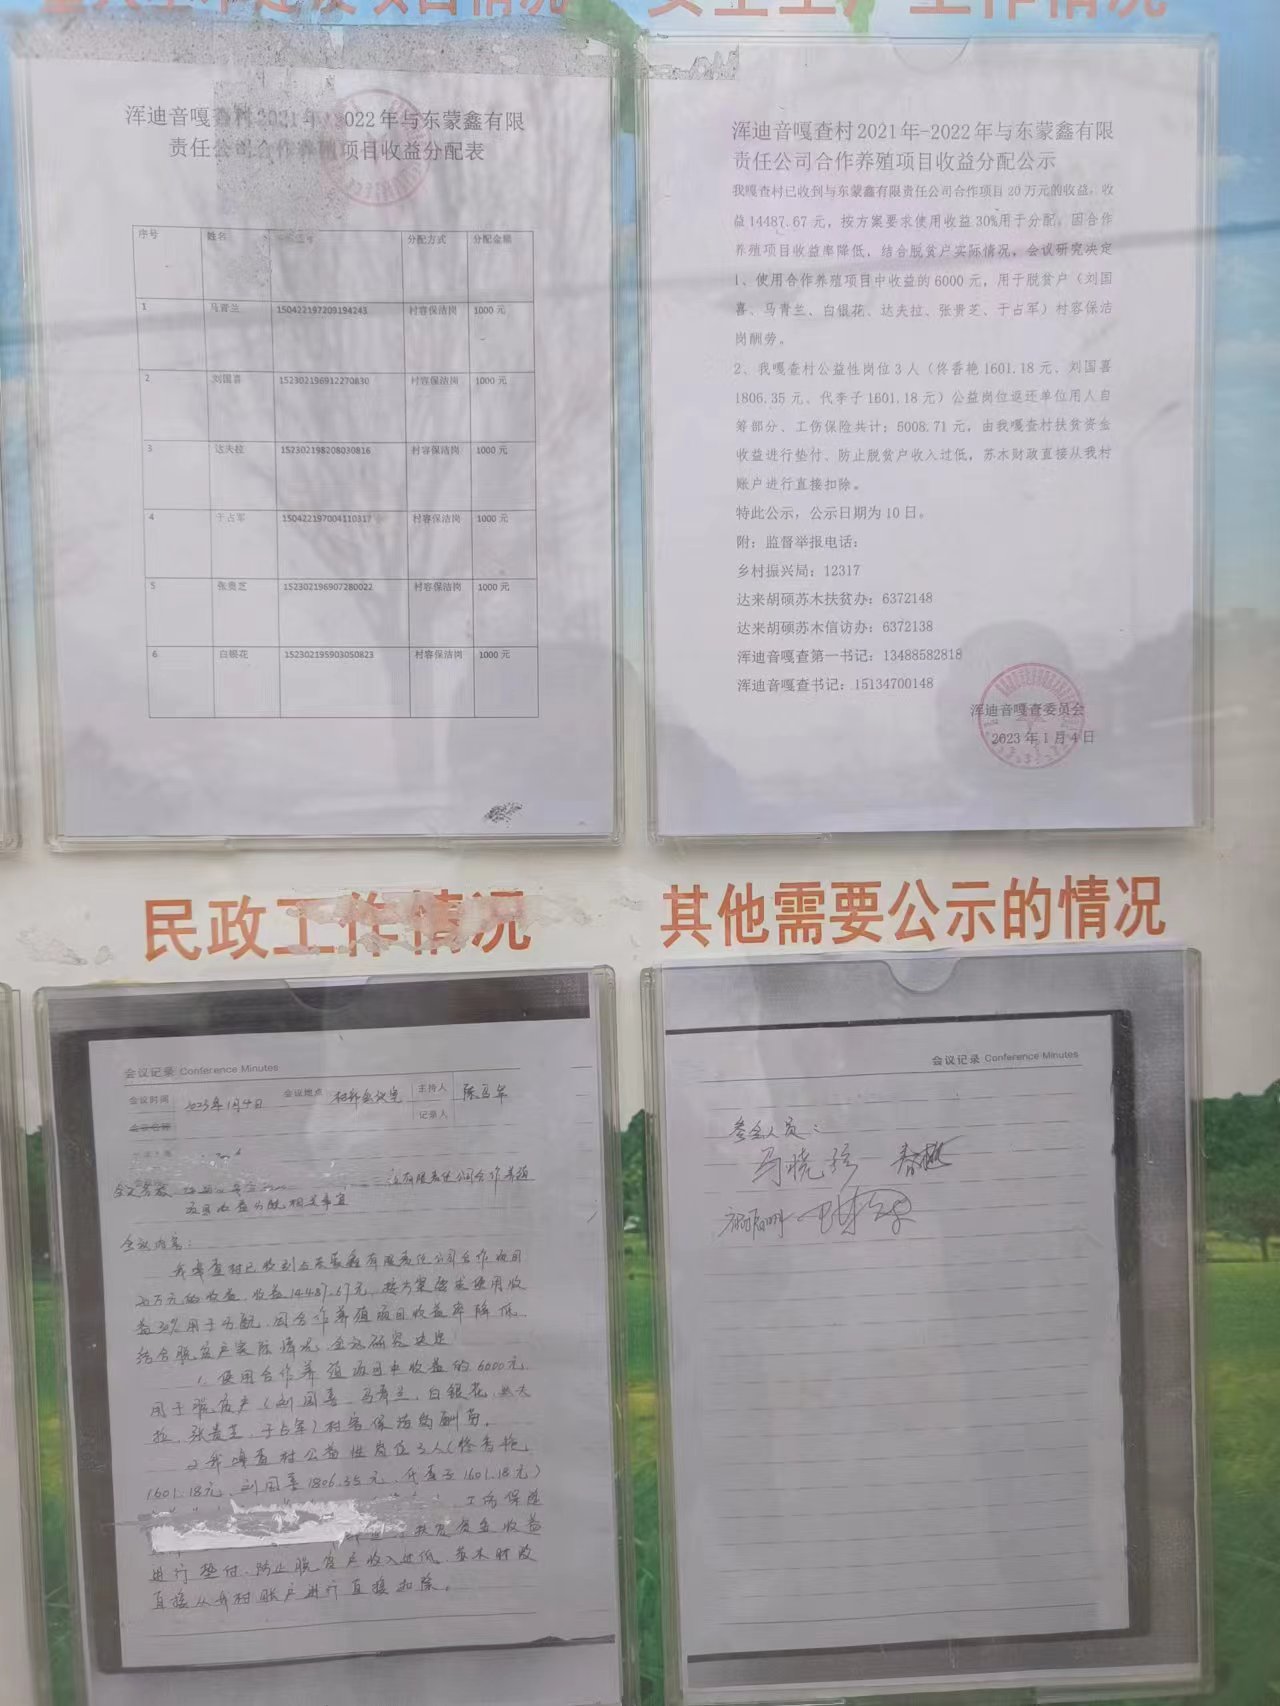 项目情况
安全生产工作情况
浑迪音嘎查村2021年-2022年与东蒙鑫有限
责任公司合作养殖项目收益分配表
序号 姓名 分配方式 分配金额
1 马青兰 150422197209194243 村容保洁岗 1000元
2 刘国喜 152302196912270830 村容保洁岗 1000元
3 达夫拉 152302198208030816 村容保洁岗 1000元
4 于占军 150422197004110317 村容保洁岗 1000元
5 张贵芝 152302196907280022 村容保洁岗 1000元
6 白银花 152302195903050823 村容保洁岗 1000元
浑迪音嘎查村2021年-2022年与东蒙鑫有限
责任公司合作养殖项目收益分配公示
我嘎查村已收到与东蒙鑫有限责任公司合作项目20万元的收益，收
益14487.67元，按方案要求使用收益30%用于分配，因合作
养殖项目收益率降低，结合脱贫户实际情况，会议研究决定
1、使用合作养殖项目中收益的6000元，用于脱贫户（刘国
喜、马青兰、白银花、达夫拉、张贵芝、于占军）村容保洁
岗酬劳。
2、我嘎查村公益性岗位3人（佟香艳1601.18元、刘国喜
1806.35元、代李子1601.18元）公益岗位返还单位用人自
筹部分、工伤保险共计；5008.71元，由我嘎查村扶贫资金
收益进行垫付、防止脱贫户收入过低，苏木财政直接从我村
账户进行直接扣除。
特此公示，公示日期为10日。
附：监督举报电话：
乡村振兴局：12317
达来胡硕苏木扶贫办：6372148
达来胡硕苏木信访办：6372138
浑迪音嘎查第一书记：13488582818
浑迪音嘎查书记：15134700148
浑迪音嘎查委员会
2023年1月4日
民政工作情况
其他需要公示的情况
会议记录 Conference Minutes
会议时间 2023年1月4日 会议地点 村部会议室 主持人
记录人
会议名称
有限责任公司合作养殖
项目收益分配相关事宜
会议内容：
我嘎查村已收到与东蒙鑫有限责任公司合作项目
20万元的收益，收益14487.67元，按方案要求使用收
益30%用于分配，因合作养殖项目收益率降低，
结合脱贫户实际情况，会议研究决定
1、使用合作养殖项目中收益的6000元，
用于脱贫户（刘国喜、马青兰、白银花、达夫
拉、张贵芝、于占军）村容保洁岗酬劳。
2、我嘎查村公益性岗位3人（佟香艳
1601.18元、刘国喜1806.35元、代李子1601.18元）
工伤保险
扶贫资金收益
进行垫付、防止脱贫户收入过低，苏木财政
直接从我村账户进行直接扣除。
会议记录 Conference Minutes
参会人员：